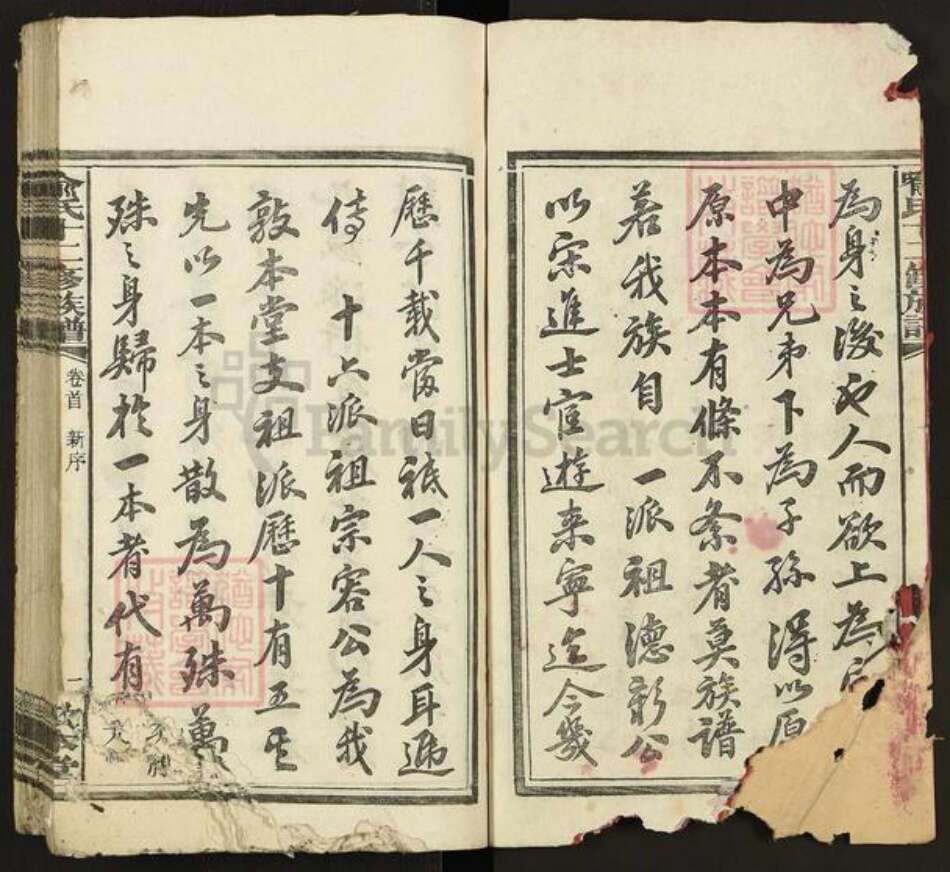 為身之後也人而欲上為
中為兄弟下為子孫得以原
原本本有條不紊者莫族譜
若我族自一派祖德彰公
以宋進士宦遊來寧迄今幾
歷千載當日祗一人之身耳遞
傳十六派祖宗容公為我
敦本堂支祖派歷十有五其
先以一本之身散為萬殊萬
殊之身歸於一本者代有
俞氏十二修族譜
卷首 新序
一
敦本堂
FamilySearch